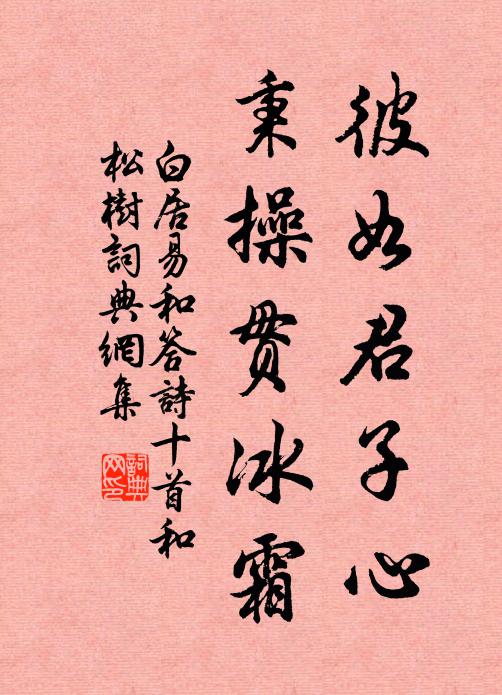 彼如君子心
秉操貫冰霜
白居易和答詩十首和
松樹詞典網集
詞典
网印